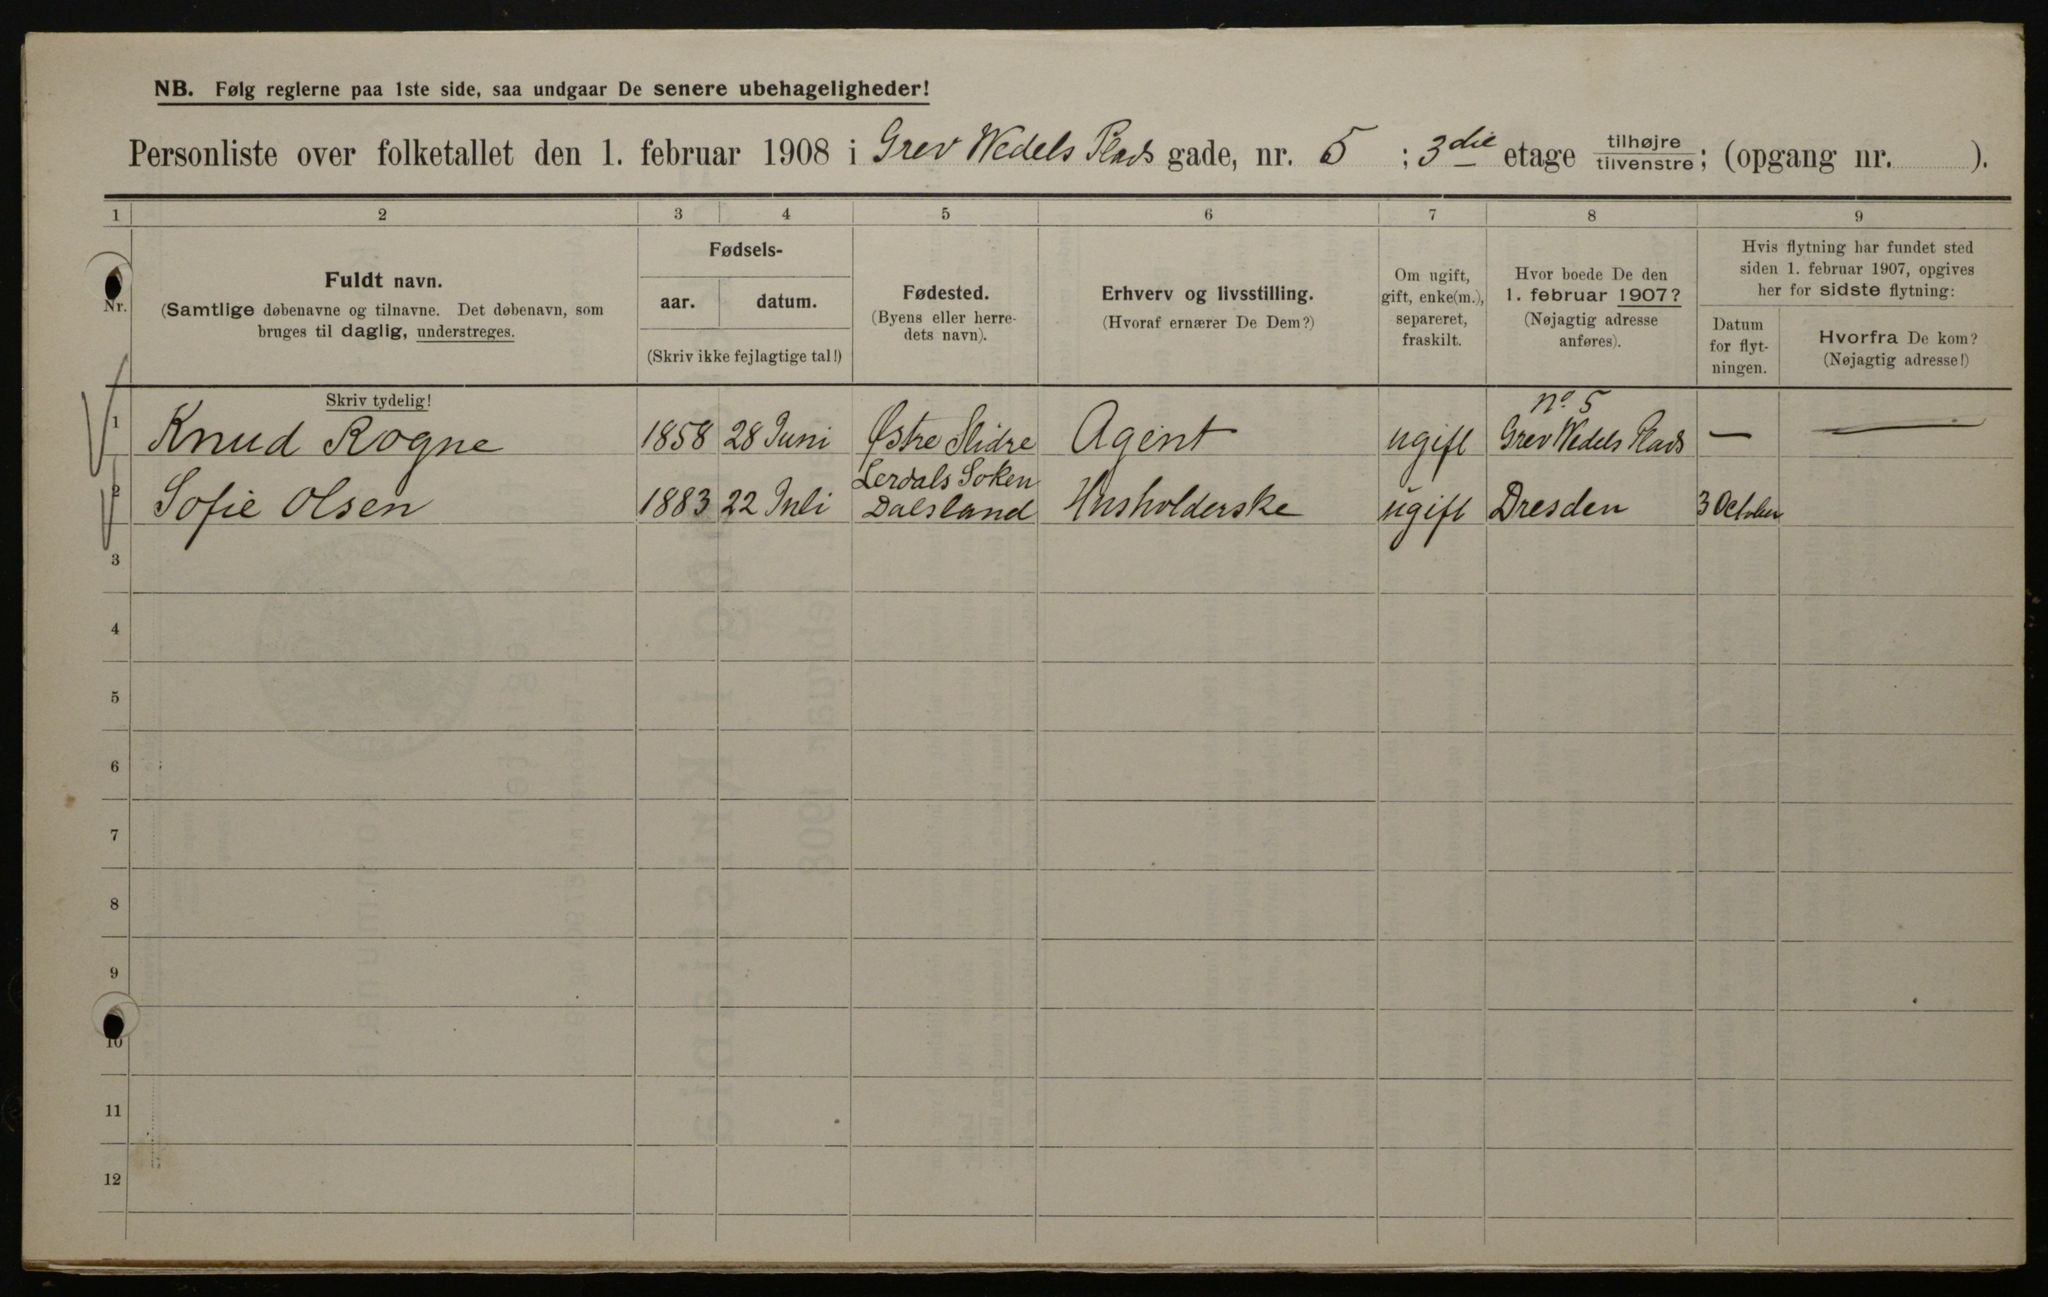 NB. Følg reglerne paa 1ste side, saa undgaar De senere ubehageligheder!
Personliste over folketallet den 1. februar 1908 i Grev Wedels Plads gade, nr. 5 ; 3die etage tilhøjre tilvenstre; (opgang nr. ).
1 2 3 4 5 6 7 8 9
Nr.
Fuldt navn.
(Samtlige døbenavne og tilnavne. Det døbenavn, som
bruges til daglig, understreges.
Skriv tydelig!
Fødsels-
aar. datum.
(Skriv ikke fejlagtige tal!)
Fødested.
(Byens eller herre-
dets navn).
Erhverv og livsstilling.
(Hvoraf ernærer De Dem?)
Om ugift,
gift, enke(m.),
separeret,
fraskilt.
Hvor boede De den
1. februar 1907?
(Nøjagtig adresse
anføres).
Hvis flytning har fundet sted
siden 1. februar 1907, opgives
her for sidste flytning:
Datum
for flyt-
ningen.
Hvorfra De kom?
(Nøjagtig adresse!)
no 5
1 Knud Rogne 1858 28 Juni Østre Slidre Agent ugift Grev Wedels Plads —
Lerdals Soken
2 Sofie Olsen 1883 22 Juli Dalsland Husholderske ugift Dresden 3 October
3
4
5
6
7
8
9
10
11
12